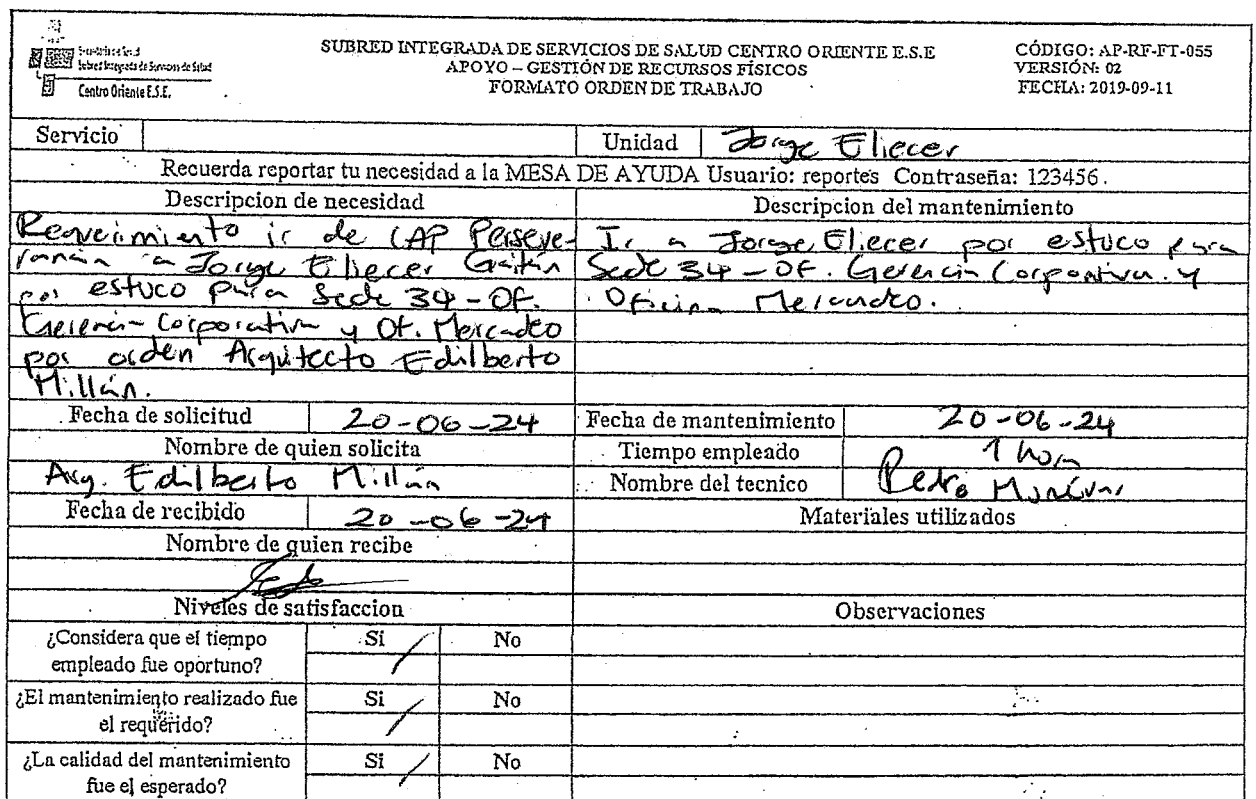 Centro Oriente E.S.E.
SUBRED INTEGRADA DE SERVICIOS DE SALUD CENTRO ORIENTE E.S.E
APOYO – GESTIÓN DE RECURSOS FÍSICOS
FORMATO ORDEN DE TRABAJO
CÓDIGO: AP-RF-FT-055
VERSIÓN: 02
FECHA: 2019-09-11
Servicio
Unidad Jorge Eliecer
Recuerda reportar tu necesidad a la MESA DE AYUDA Usuario: reportes Contraseña: 123456.
Descripcion de necesidad
Requerimiento ir de CAP Perseve-
rancia a Jorge Eliecer Gaitán
por estuco para Sede 34 - Of.
Gerencia Corporativa y Of. Mercadeo
por orden Arquitecto Edilberto
Millán.
Descripcion del mantenimiento
Ir a Jorge Eliecer por estuco para
Sede 34 - Of. Gerencia Corporativa y
Oficina Mercadeo.
Fecha de solicitud 20-06-24
Fecha de mantenimiento 20-06-24
Nombre de quien solicita
Tiempo empleado 1 hora
Arq. Edilberto Millán
Nombre del tecnico Pedro
Fecha de recibido 20-06-24
Materiales utilizados
Nombre de quien recibe
Niveles de satisfaccion
Observaciones
¿Considera que el tiempo
empleado fue oportuno?
Si No
¿El mantenimiento realizado fue
el requerido?
Si No
¿La calidad del mantenimiento
fue el esperado?
Si No